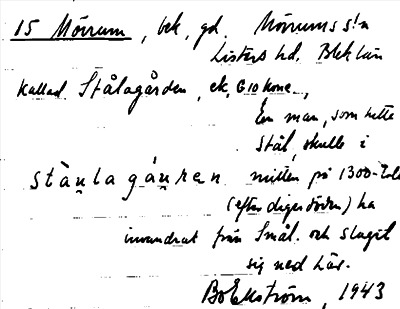 15 Mörrum, bek, gd. Mörrums s:n
Listers hd. Blekun
kallad Stålagården, ek. G10 kone.,
En man, som hette
Stål, skulle i
stå̀nlagáṇren mitten på 1300-tale
(efter digerdöden) ha
invandrat från Smål. och slagit
sig ned här.
Bo Ekström, 1943